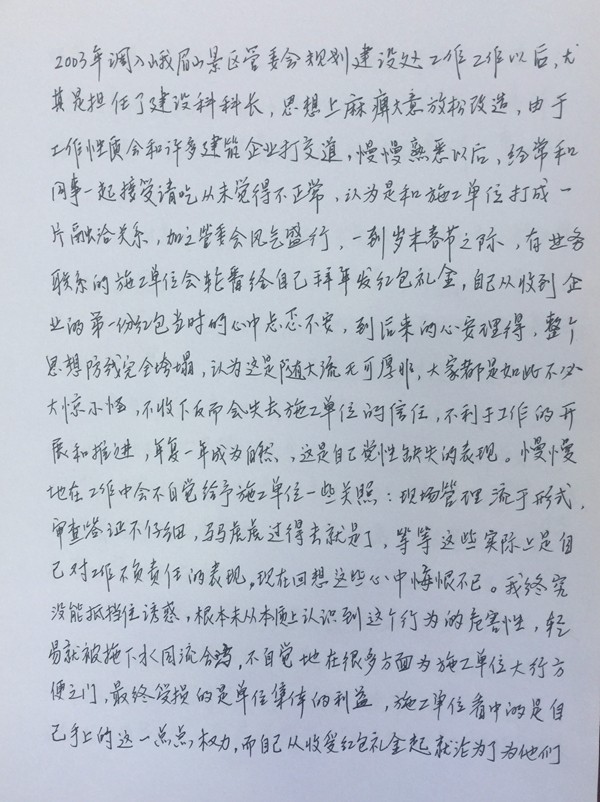 2003年调入峨眉山景区管委会规划建设处工作工作以后,尤
其是担任了建设科科长,思想上麻痹大意放松改造,由于
工作性质会和许多建筑企业打交道,慢慢熟悉以后,经常和
同事一起接受请吃从未觉得不正常,认为是和施工单位打成一
片融洽关系,加之管委会风气盛行,一到岁末春节之际,有业务
联系的施工单位会轮番给自己拜年发红包礼金,自己从收到企
业的第一份红包当时的心中忐忑不安,到后来的心安理得,整个
思想防线完全垮塌,认为这是随大流无可厚非,大家都是如此不必
大惊小怪,不收下反而会失去施工单位的信任,不利于工作的开
展和推进,年复一年成为自然,这是自己党性缺失的表现。慢慢
地在工作中会不自觉给予施工单位一些关照:现场管理流于形式,
审查签证不仔细,马马虎虎过得去就是了,等等这些实际上是自
己对工作不负责任的表现。现在回想这些心中悔恨不已。我终究
没能抵挡住诱惑,根本未从本质上认识到这个行为的危害性,轻
易就被拖下水同流合污,不自觉地在很多方面为施工单位大行方
便之门,最终受损的是单位集体的利益,施工单位看中的是自
己手上的这一点点权力,而自己从收受红包礼金起就沦为了为他们